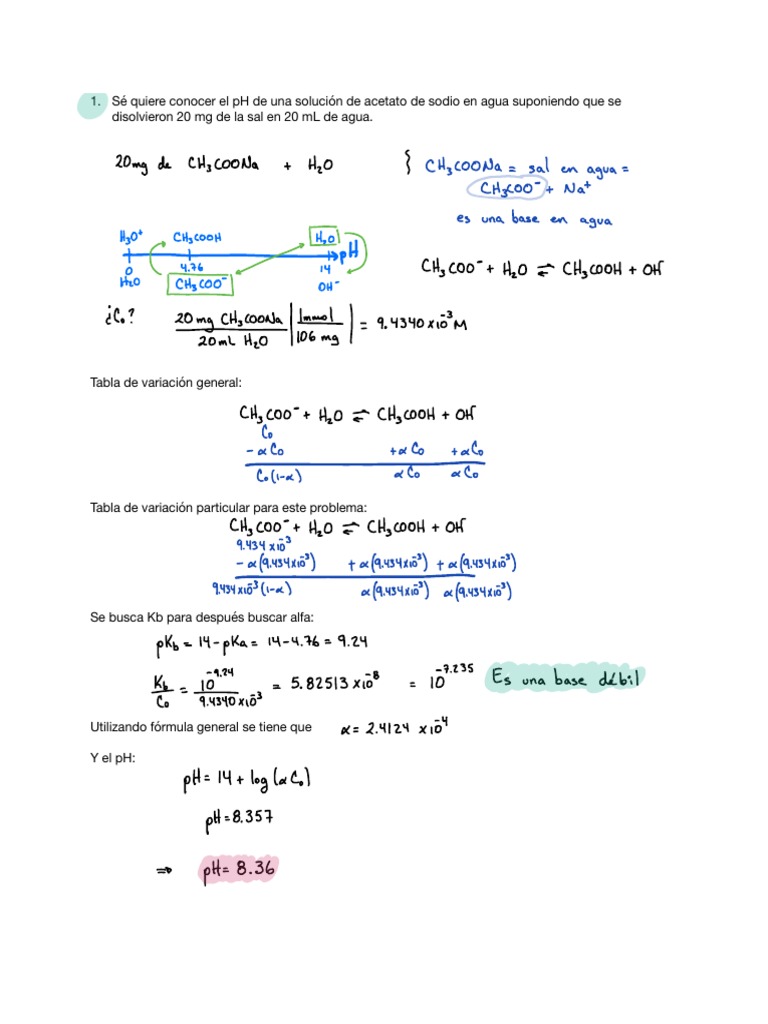 1. Sé quiere conocer el pH de una solución de acetato de sodio en agua suponiendo que se
disolvieron 20 mg de la sal en 20 mL de agua.
20mg de CH₃COONa + H₂O
{ CH₃COONa = sal en agua =
CH₃COO⁻ + Na⁺
es una base en agua
H₃O⁺ CH₃COOH H₂O
pH
0 4.76 14
H₂O CH₃COO⁻ OH⁻
CH₃COO⁻ + H₂O ⇌ CH₃COOH + OH⁻
¿C₀? 20 mg CH₃COONa | 1mmol | = 9.4340 x10⁻³ M
20mL H₂O | 106 mg |
Tabla de variación general:
CH₃COO⁻ + H₂O ⇌ CH₃COOH + OH⁻
C₀
-αC₀ +αC₀ +αC₀
C₀(1-α) αC₀ αC₀
Tabla de variación particular para este problema:
CH₃COO⁻ + H₂O ⇌ CH₃COOH + OH⁻
9.434 x10⁻³
-α(9.434x10⁻³) +α(9.434x10⁻³) +α(9.434x10⁻³)
9.434x10⁻³(1-α) α(9.434x10⁻³) α(9.434x10⁻³)
Se busca Kb para después buscar alfa:
pKb = 14-pKa = 14-4.76 = 9.24
Kb/C₀ = 10⁻⁹·²⁴/9.4340 x10⁻³ = 5.82513 x10⁻⁸ = 10⁻⁷·²³⁵ Es una base débil
Utilizando fórmula general se tiene que α = 2.4124 x10⁻⁴
Y el pH:
pH = 14 + log(αC₀)
pH = 8.357
⇒ pH = 8.36